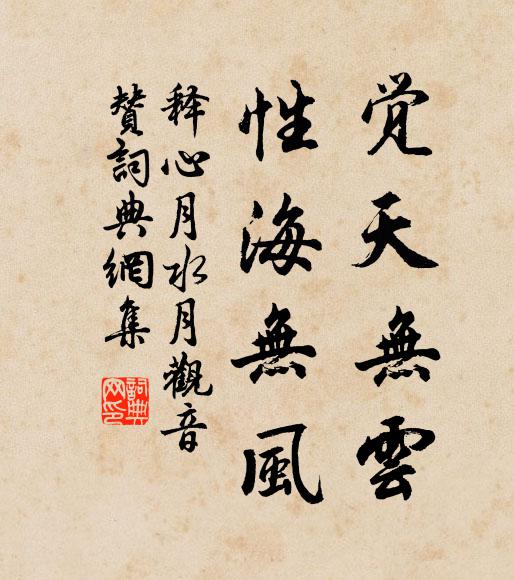 覚天無雲
性海無風
釋心月水月觀音
贊詞典網集
詞典
网印